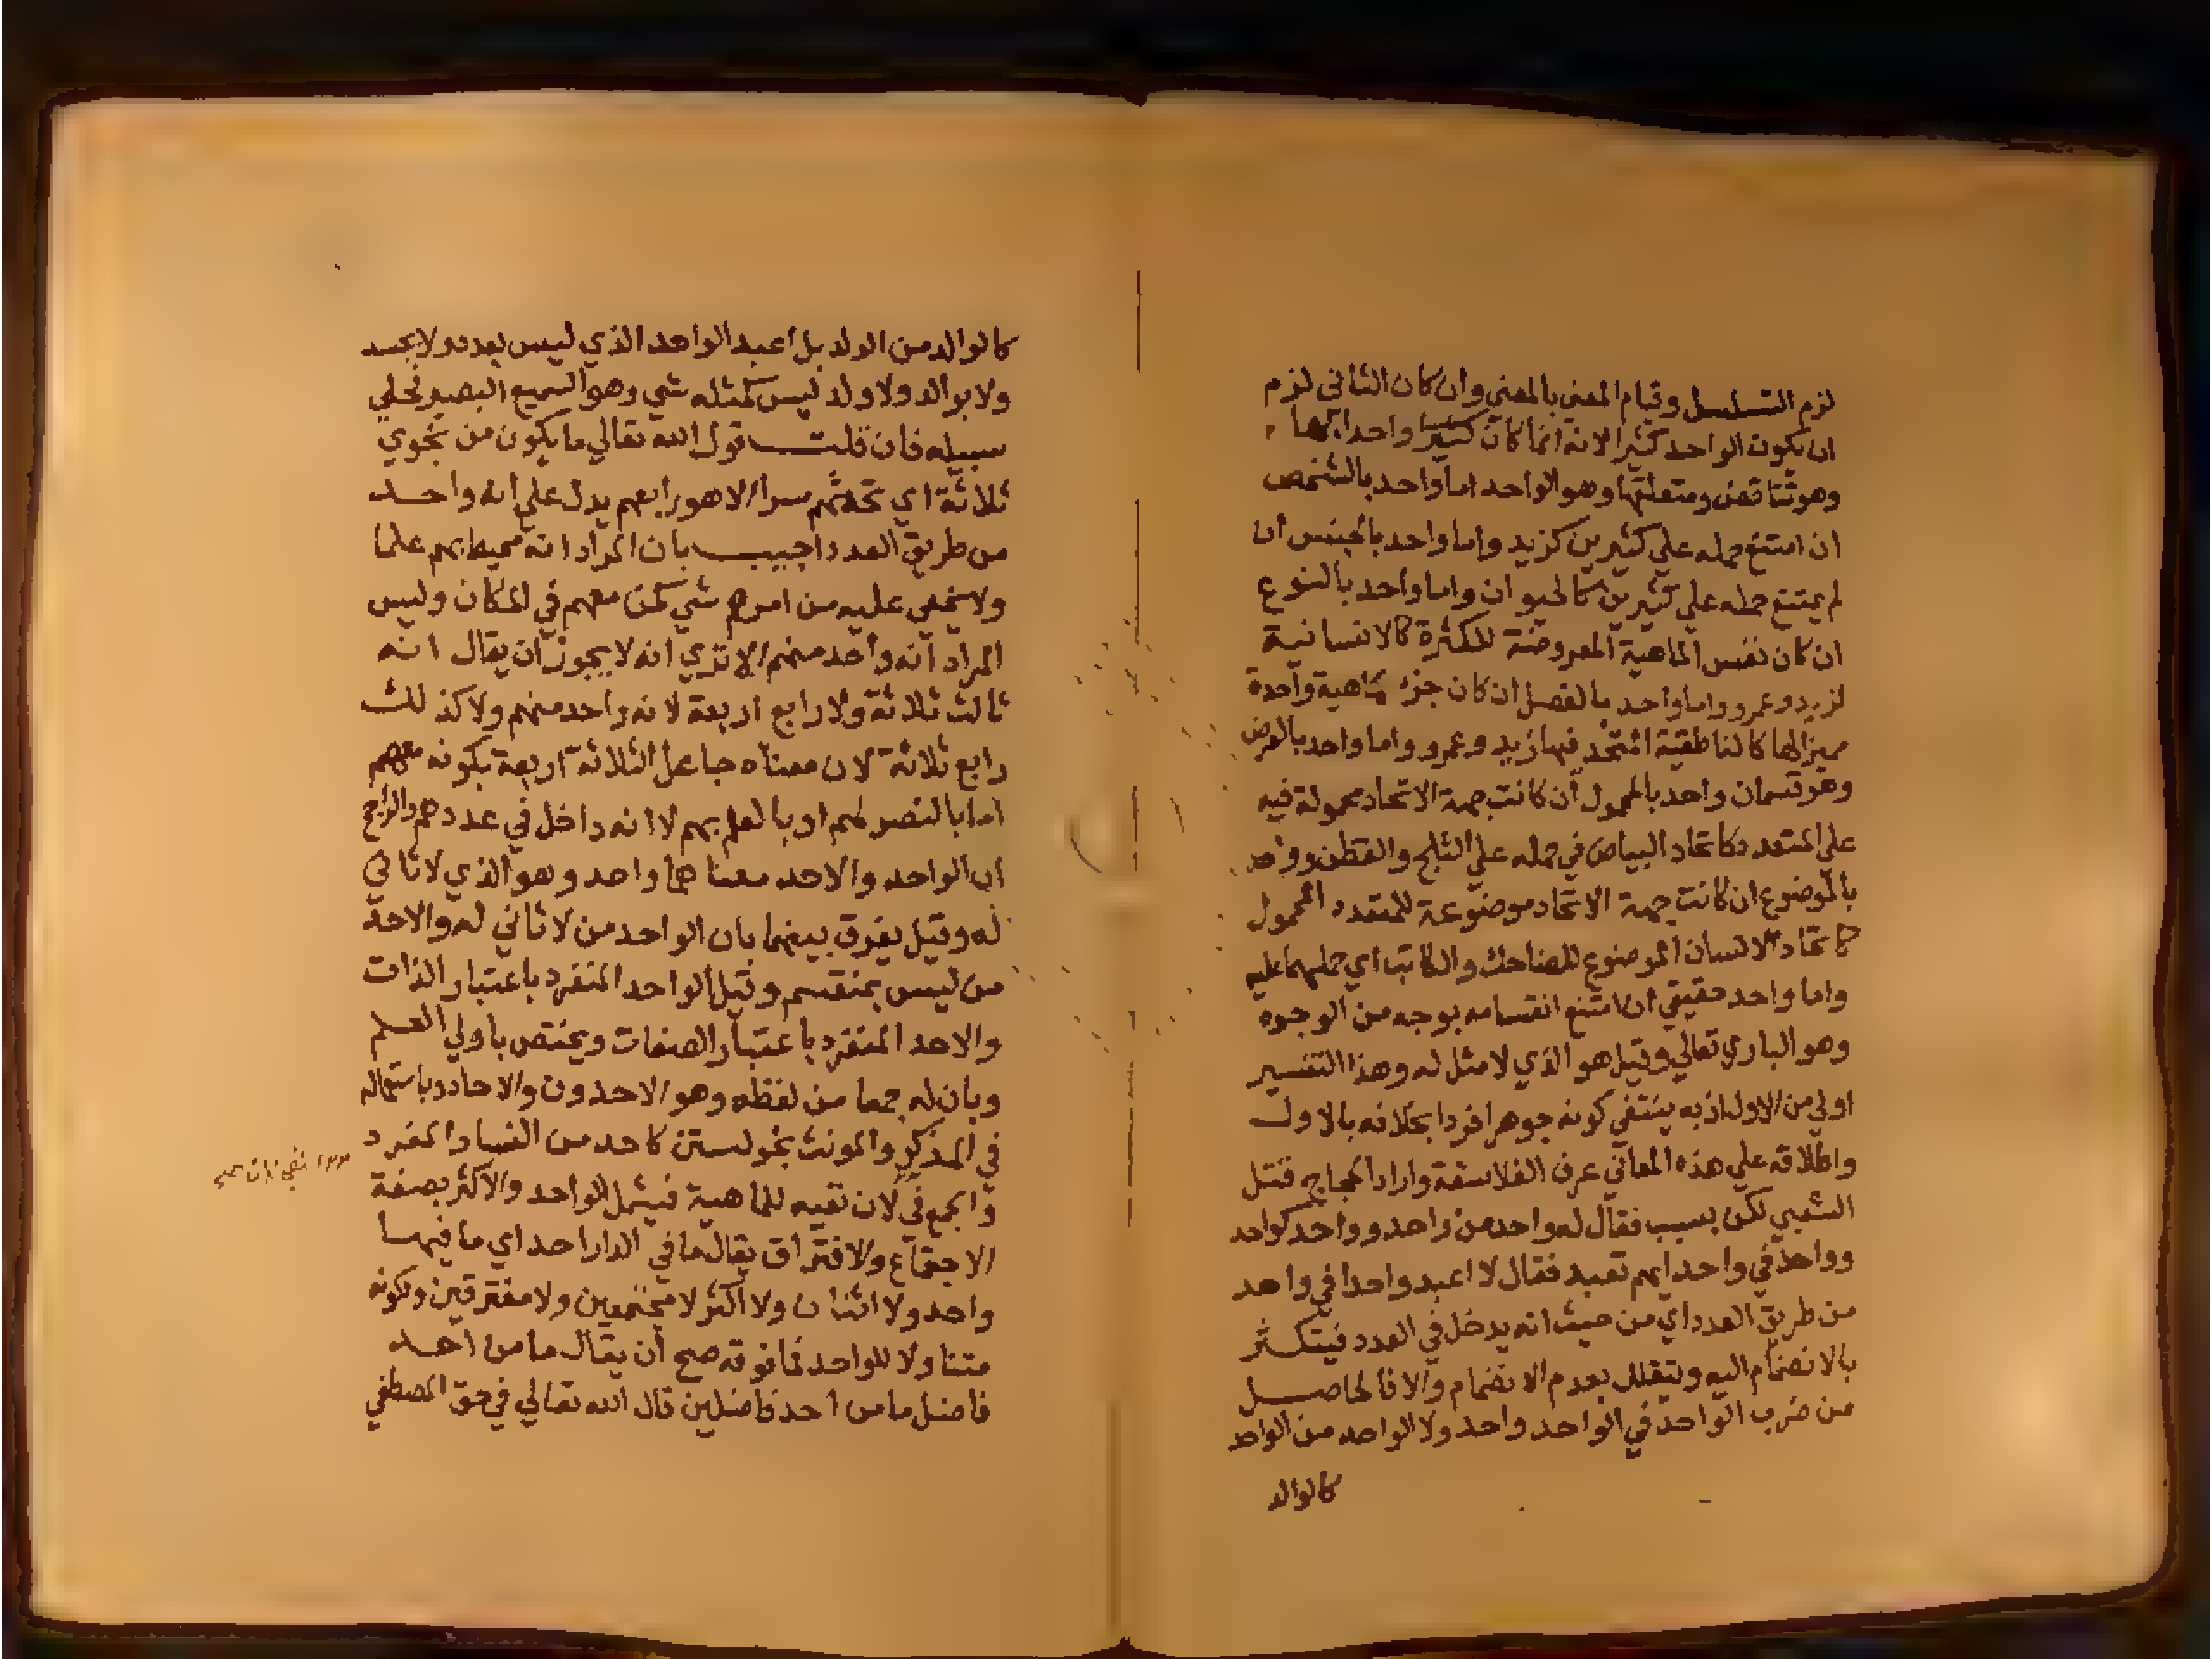 لزم التسلسل وقيام المعنى بالمعنى وان كان الثانى لزم
ان يكون الواحد كثيرا لانه انما كان كثيرا واحدا بها
وهو تناقض ومتعلقها وهو الواحد اما واحد بالشخص
ان امتنع حمله علي كثيرين كزيد واما واحد بالجنس ان
لم يمتنع حمله علي كثيرين كالحيوان واما واحد بالنوع
ان كان نفس الماهية المعروضة للكثرة كالانسانية
لزيد وعمرو واما واحد بالفصل ان كان جزء ماهية واحدة
مميزا لها كالناطقية المتحد فيها زيد وعمرو واما واحد بالعرض
وهو قسمان واحد بالمحمول ان كانت جهة الاتحاد محمولة فيه
علي المتعدد كاتحاد البياض في حمله علي الثلج والقطن وواحد
بالموضوع ان كانت جهة الاتحاد موضوعة للمتعدد المحمول
كاتحاد الانسان الموضوع للضاحك والكاتب اي حملهما عليه
واما واحد حقيقي ان امتنع انقسامه بوجه من الوجوه
وهو الباري تعالي وقيل هو الذي لا مثل له وهذا التفسير
اولي من الاول اذ به ينتفي كونه جوهرا فردا بخلافه بالاول
واطلاقه علي هذه المعاني عرف الفلاسفة واراد الحجاج قتل
الشعبي لكن بسبب فقال له واحد من واحد وواحد كواحد
وواحد في واحد ايهم تعبد فقال لا اعبد واحدا في واحد
من طريق العدد اي من حيث انه يدخل في العدد فيتكثر
بالانضمام اليه ويتقلل بعدم الانضمام والا فالحاصل
من ضرب الواحد في الواحد واحد ولا الواحد من الواحد
كالوالد
كالوالد من الولد بل اعبد الواحد الذي ليس بعدد ولا بجسد
ولا بوالد ولا ولد ليس كمثله شي وهو السميع البصير فخلي
سبيله فان قلت قول الله تعالي ما يكون من نجوي
ثلاثة اي تحدثهم سرا الا هو رابعهم يدل علي انه واحد
من طريق العدد اجيب بان المراد انه محيط بهم علما
ولا يخفي عليه من امرهم شي كمن معهم في المكان وليس
المراد انه واحد منهم الا تري انه لا يجوز ان يقال انه
ثالث ثلاثة ولا رابع اربعة لانه واحد منهم ولا كذلك
رابع ثلاثة لان معناه جاعل الثلاثة اربعة بكونه معهم
اما بالنصر لهم او بالعلم بهم لا انه داخل في عددهم والراجح
ان الواحد والاحد معناهما واحد وهو الذي لا ثاني
له وقيل يفرق بينهما بان الواحد من لا ثاني له والاحد
من ليس بمنقسم وقيل الواحد المنفرد باعتبار الذات
والاحد المنفرد باعتبار الصفات ويختص باولي العلم
وبان له جمعا من لفظه وهو الاحدون والاحاد وباستعماله
في المذكر والمونث نحو لستن كاحد من النسا والمفرد
والجمع في لان نفيه للماهية فيشمل الواحد والاكثر بصفة
الاجتماع والافتراق يقال ما في الدار احد اي ما فيها
واحد ولا اثنان ولا اكثر لا مجتمعين ولا مفترقين ولكونه
متناولا للواحد فما فوقه صح ان يقال ما من احد
فاضل ما من احد فاضلين قال الله تعالي في حق المصطفي